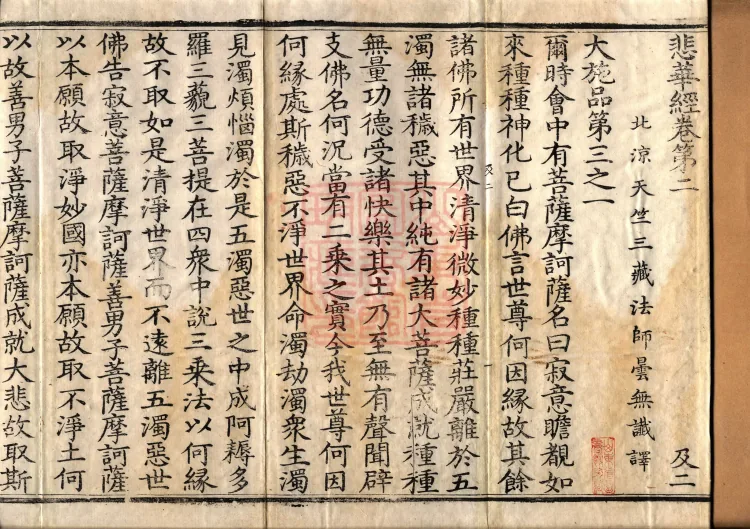 悲華經卷第二
及二
北涼天竺三藏法師曇無讖譯
大施品第三之一
爾時會中有菩薩摩訶薩名曰寂意瞻覩如
來種種神化已白佛言世尊何因緣故其餘
諸佛所有世界清淨微妙種種莊嚴離於五
及二
濁無諸穢惡其中純有諸大菩薩成就種種
無量功德受諸快樂其土乃至無有聲聞辟
支佛名何況當有二乘之實今我世尊何因
何緣處斯穢惡不淨世界命濁劫濁衆生濁
見濁煩惱濁於是五濁惡世之中成阿耨多
羅三藐三菩提在四衆中說三乘法以何緣
故不取如是清淨世界而不遠離五濁惡世
佛告寂意菩薩摩訶薩善男子菩薩摩訶薩
以本願故取淨妙國亦本願故取不淨土何
以故善男子菩薩摩訶薩成就大悲故取斯